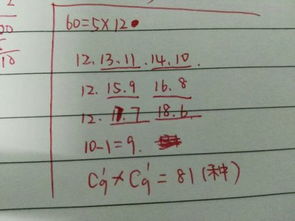 60=5×12
12. 13. 11. 14. 10.
12. 15. 9 16. 8
12. 17. 7 18. 6
10-1=9.
C₉¹×C₉¹=81(种)